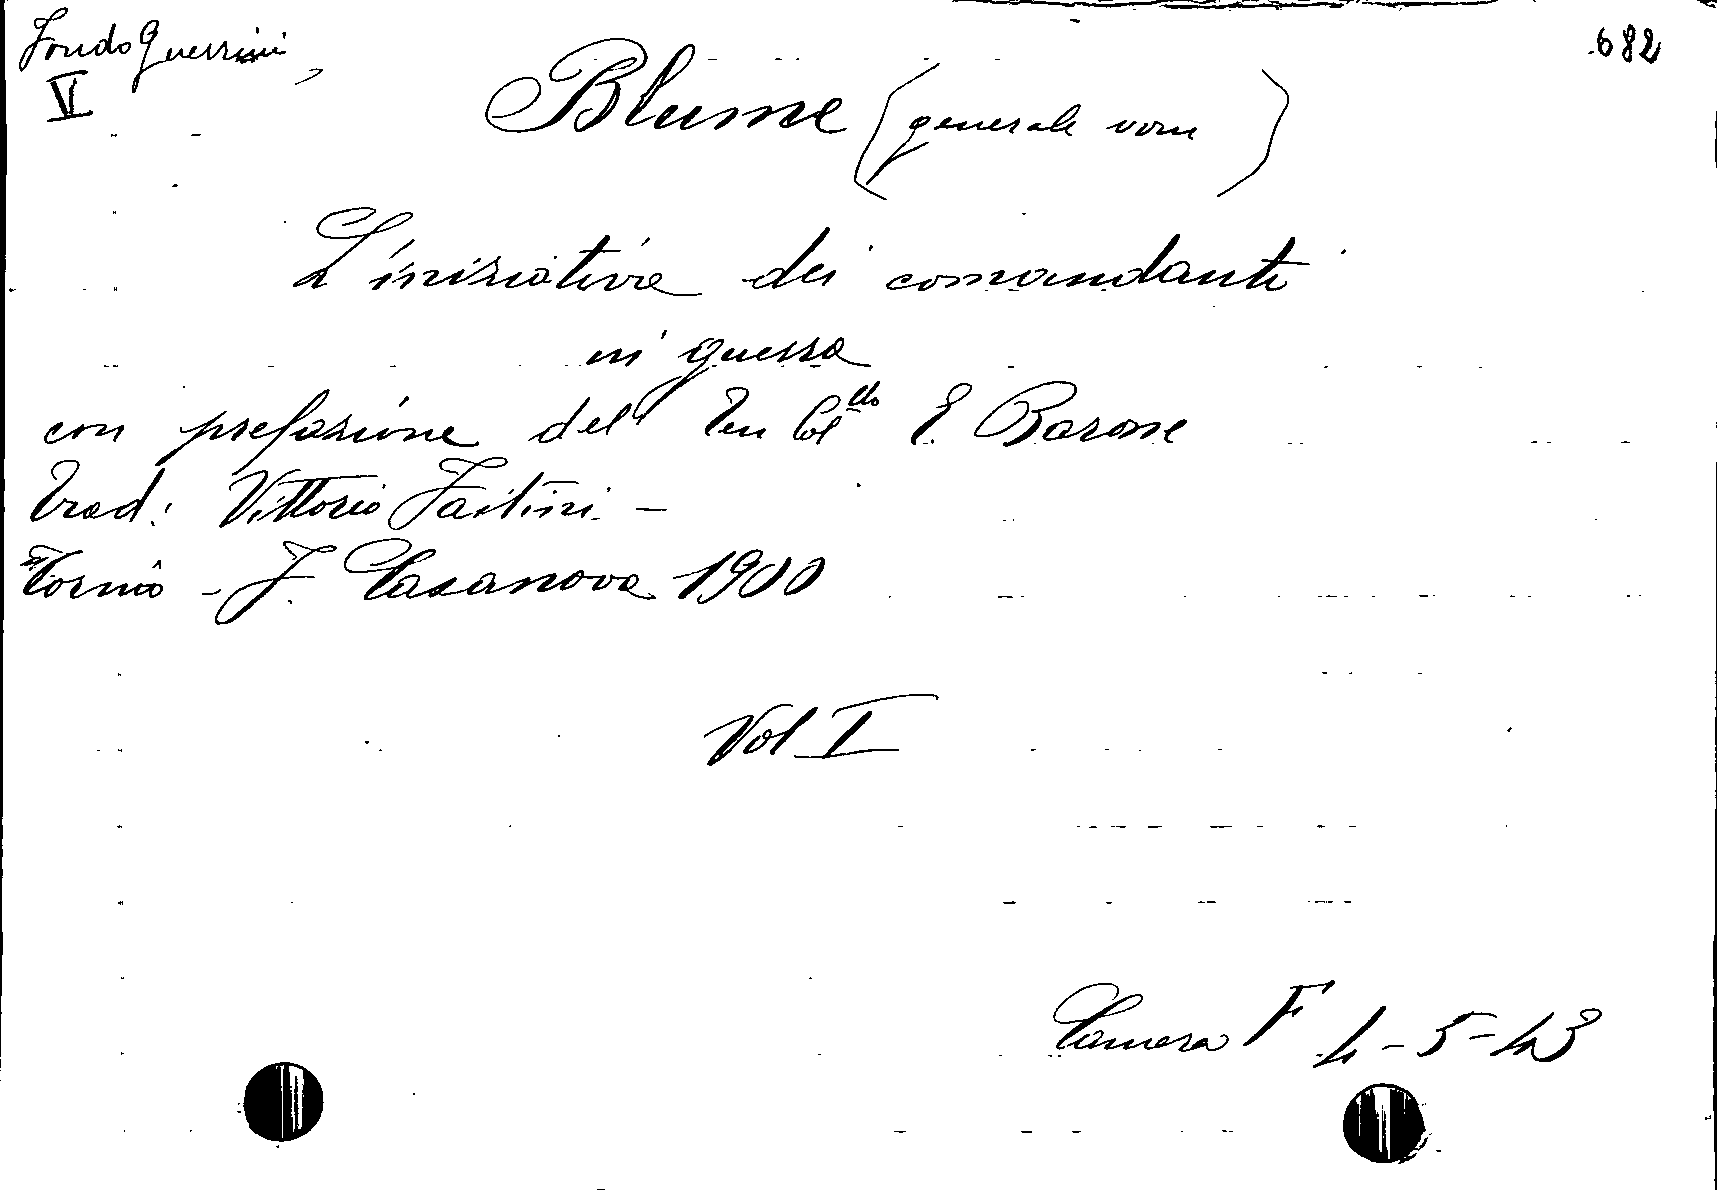 Fondo Guerrini
V
682
Blume (generale von)
L'iniziativa dei comandanti
in guerra
con prefazione del Ten Col.llo E. Barone
Trad: Vittorio
Torino - F. Casanova 1900
Vol I
Camera F 4-5-43